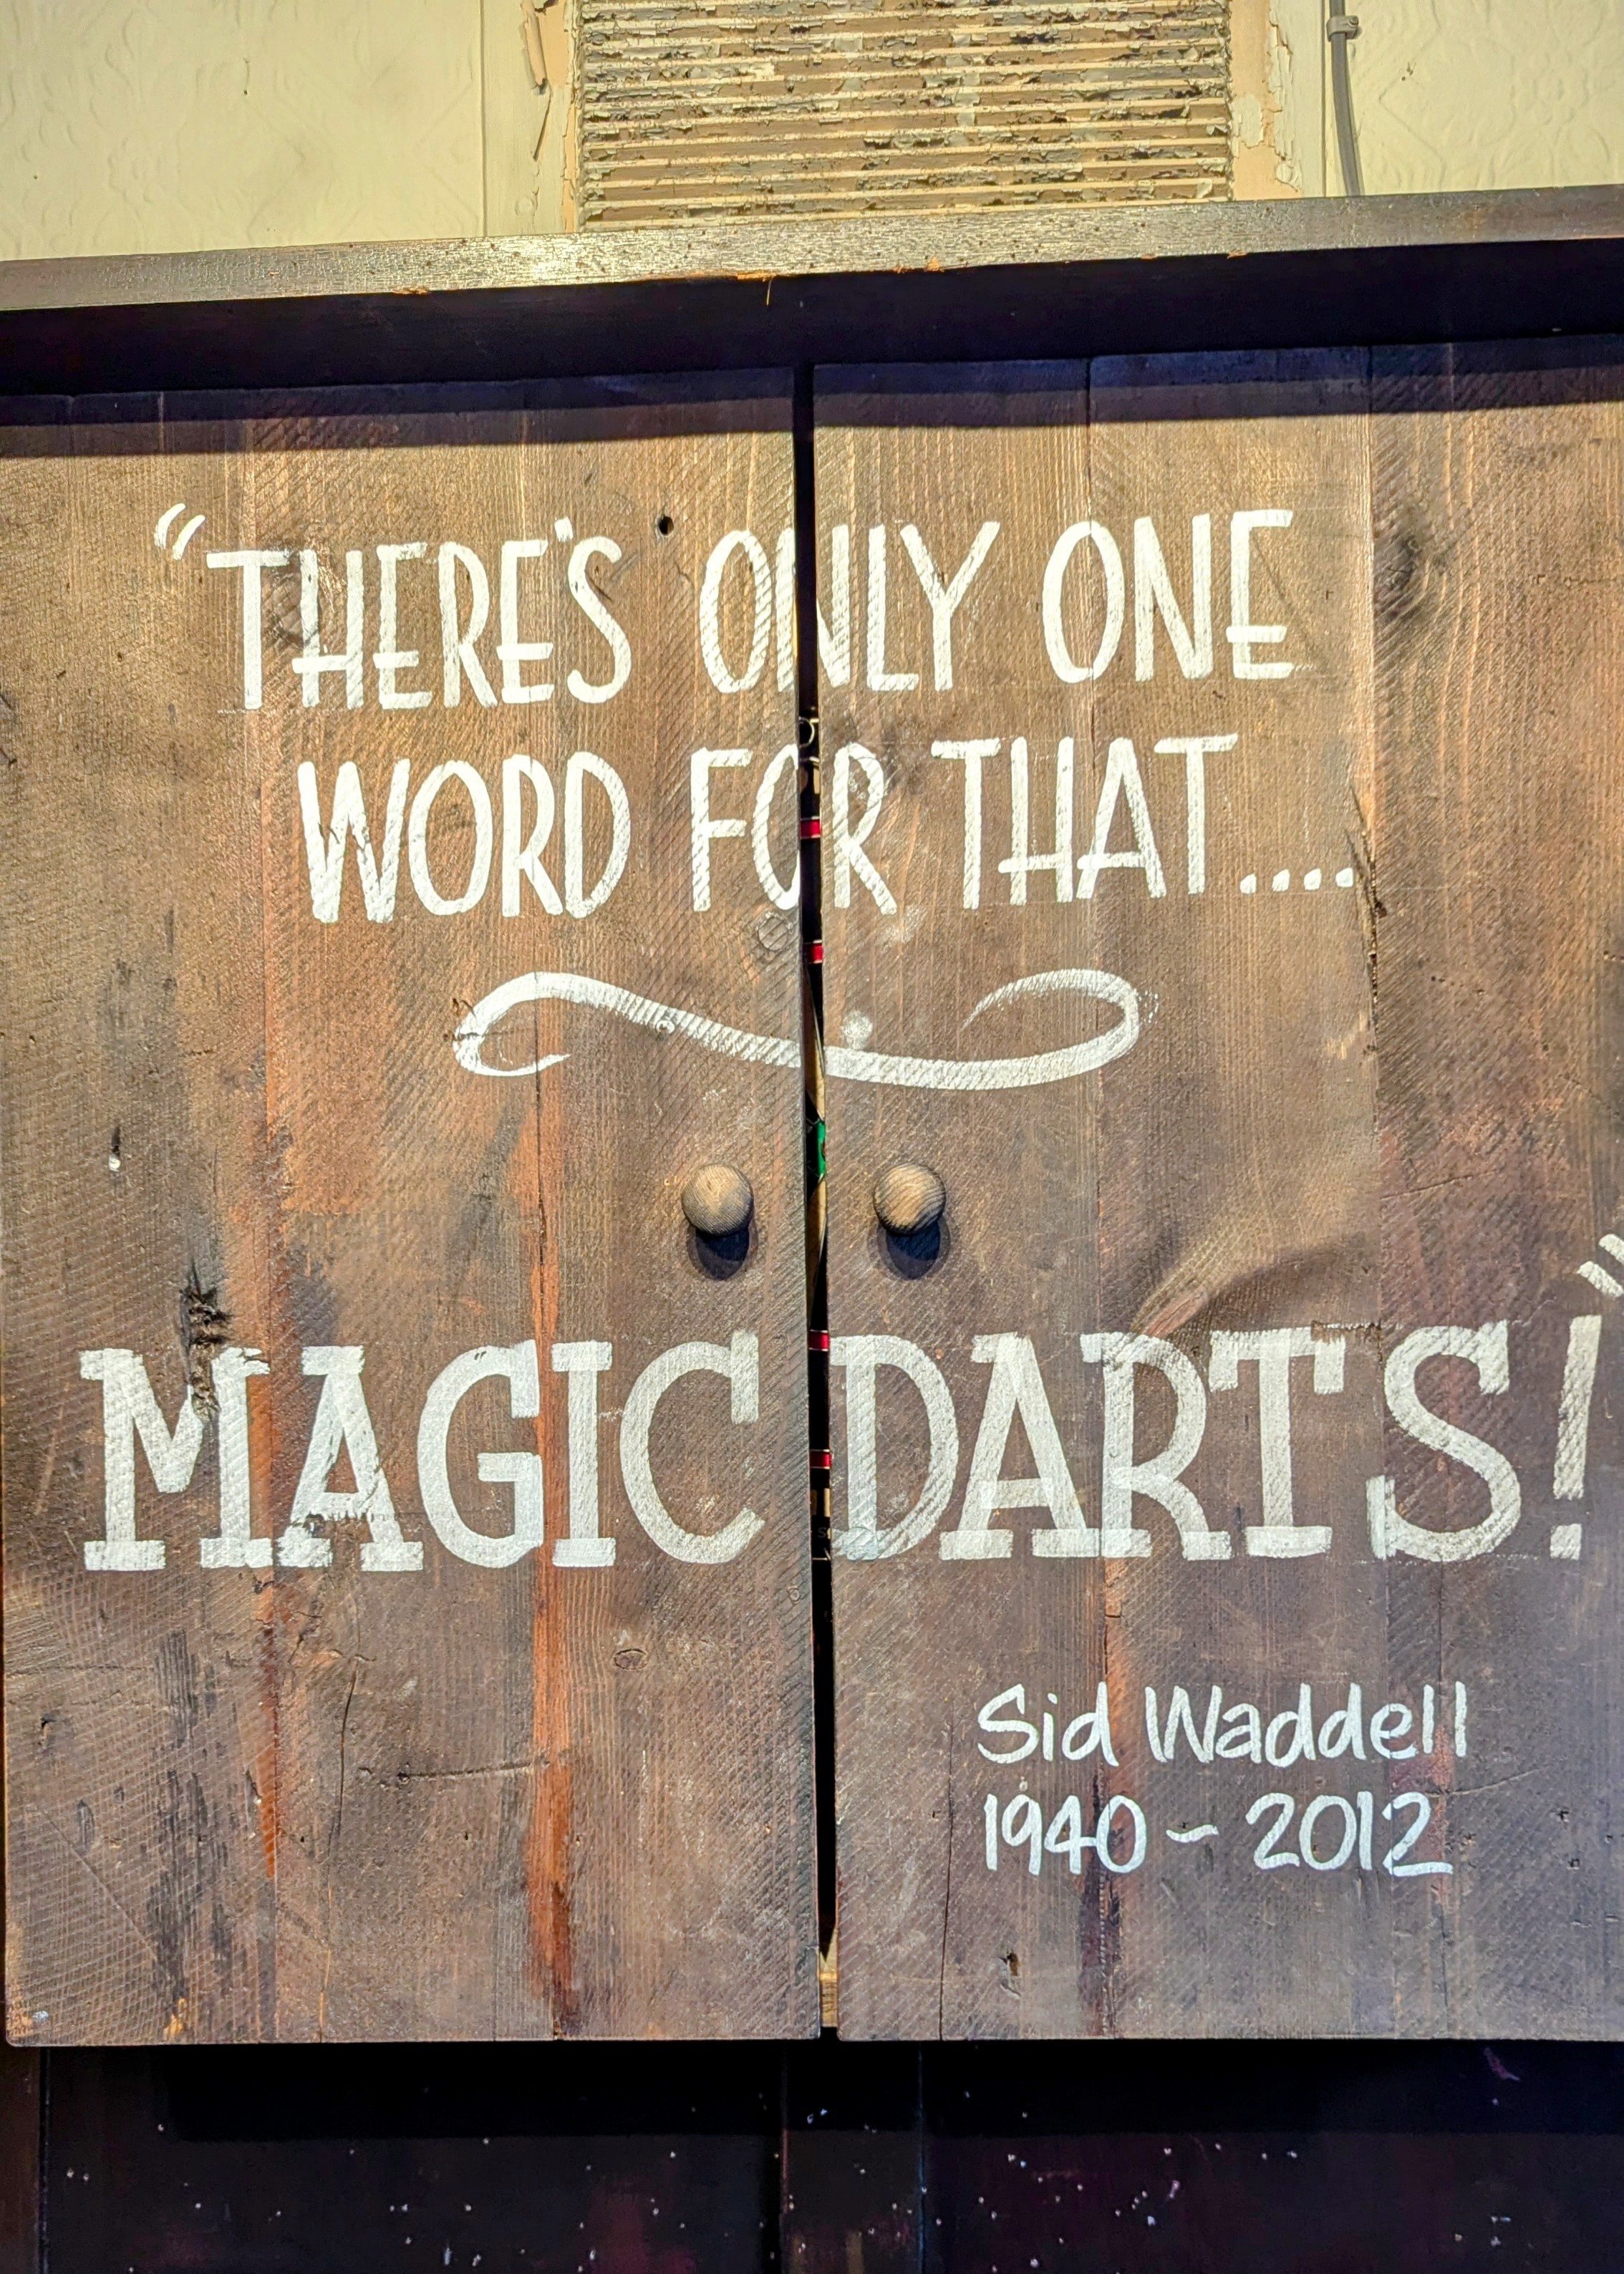 “THERE'S ONLY ONE
WORD FOR THAT....
MAGIC DARTS!”
Sid Waddell
1940 - 2012